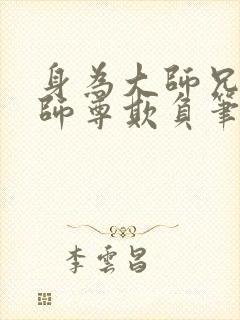 身為大師兄
師尊欺負筆
李雲昌